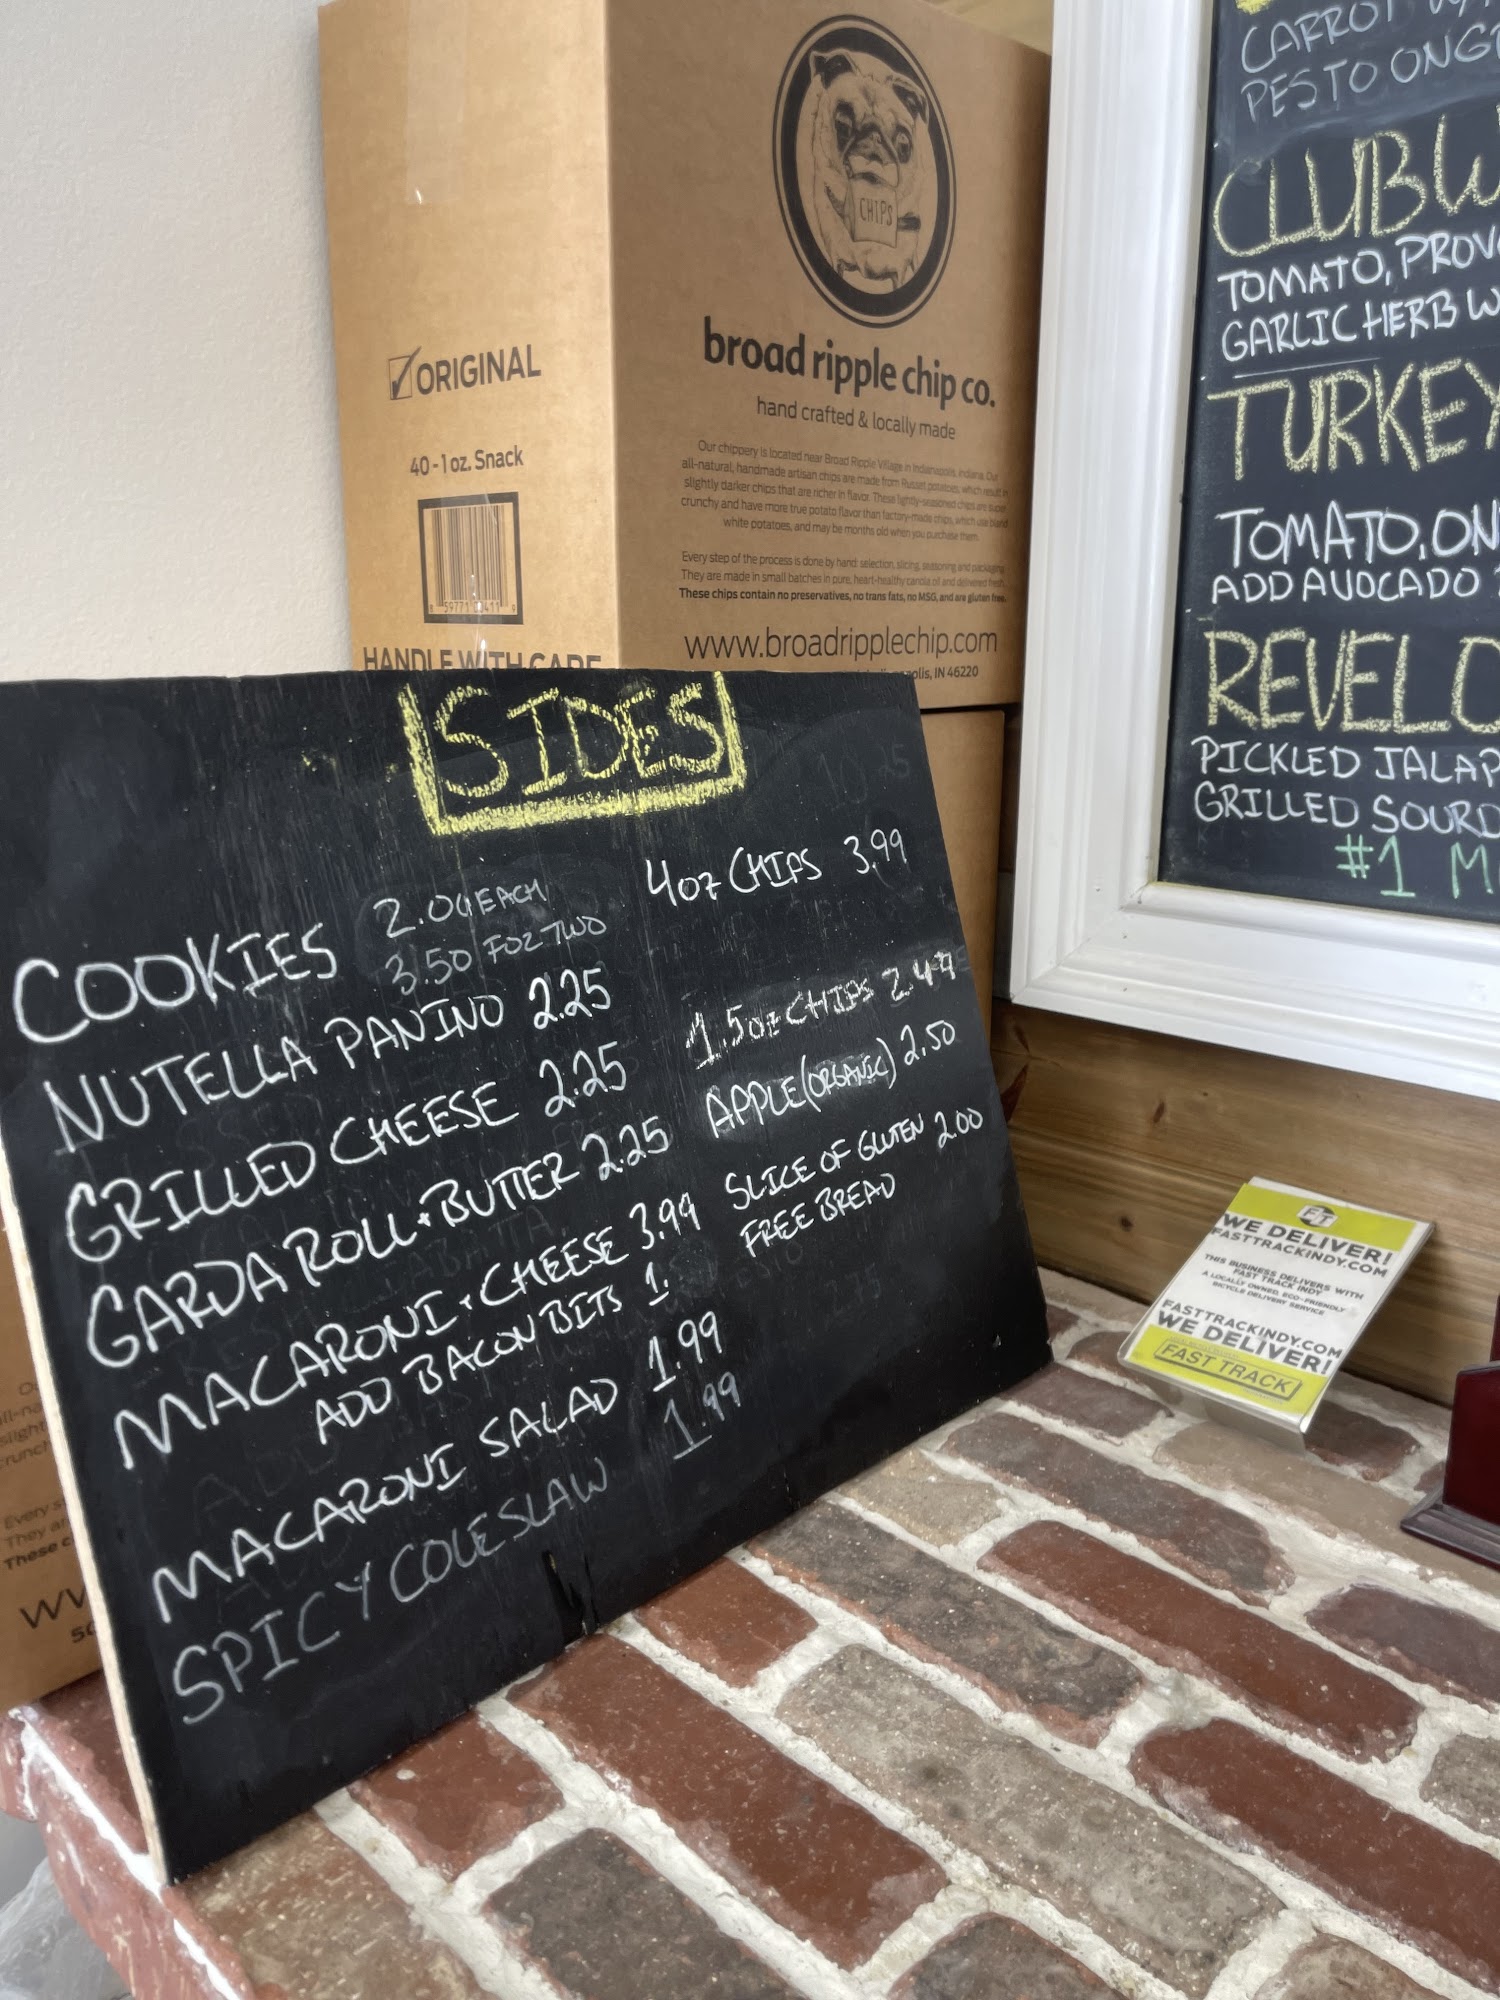 CHIPS
broad ripple chip co.
hand crafted & locally made
Our chippery is located near Broad Ripple Village in Indianapolis, Indiana. Our
all-natural, handmade artisan chips are made from Russet potatoes, which result in
slightly darker chips that are richer in flavor. These lightly-seasoned chips are super
crunchy and have more true potato flavor than factory-made chips, which use bland
white potatoes, and may be months old when you purchase them.
Every step of the process is done by hand: selection, slicing, seasoning and packaging.
They are made in small batches in pure, heart-healthy canola oil and delivered fresh.
These chips contain no preservatives, no trans fats, no MSG, and are gluten free.
www.broadripplechip.com
IN 46220
ORIGINAL
40 - 1 oz. Snack
HANDLE WITH CARE
SIDES
COOKIES 2.00 EACH
3.50 FOR TWO
NUTELLA PANINO 2.25
GRILLED CHEESE 2.25
GARDA ROLL + BUTTER 2.25
MACARONI + CHEESE 3.99
ADD BACON BITS 1.
MACARONI SALAD 1.99
SPICY COLESLAW 1.99
4oz CHIPS 3.99
1.5oz CHIPS 2.49
APPLE (ORGANIC) 2.50
SLICE OF GLUTEN 2.00
FREE BREAD
CARROT
PESTO
CLUB
TOMATO,
GARLIC HERB
TURKEY
TOMATO,
ADD AVOCADO
PICKLED
GRILLED
#1
FT
WE DELIVER!
FASTTRACKINDY.COM
THIS BUSINESS DELIVERS WITH
FAST TRACK INDY
A LOCALLY OWNED, ECO-FRIENDLY
BICYCLE DELIVERY SERVICE
FASTTRACKINDY.COM
WE DELIVER!
FAST TRACK
Every
They
These